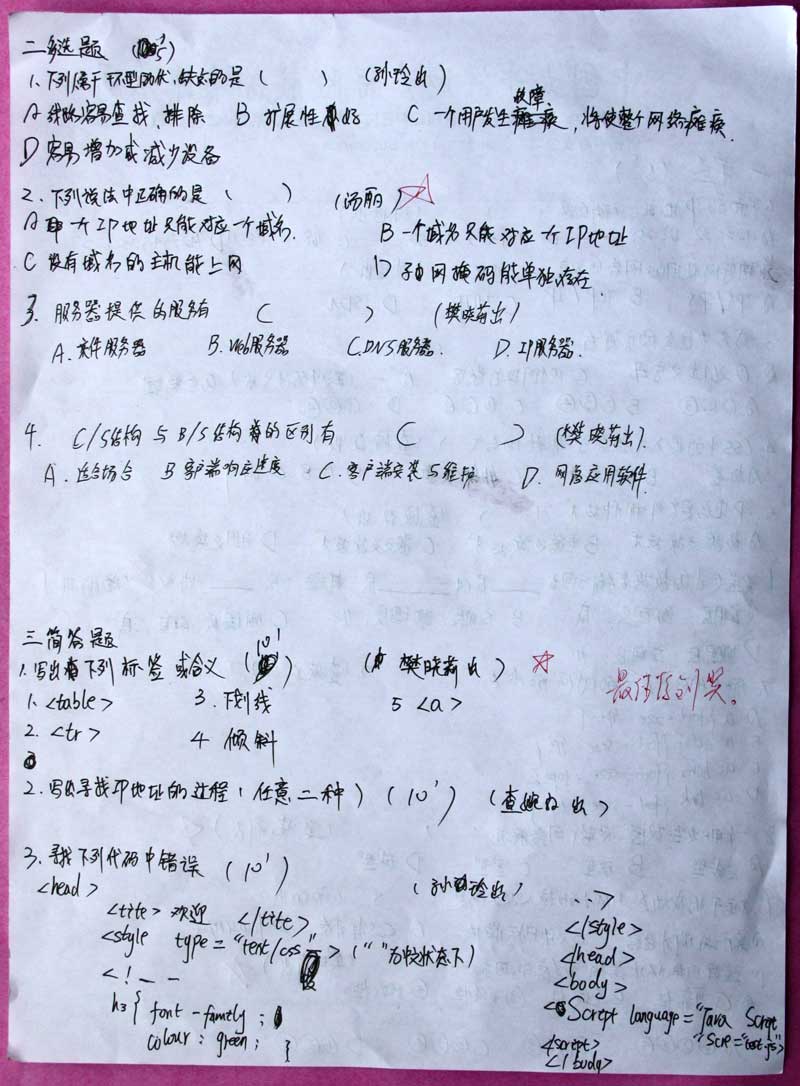 二 多选题 (15')
1、下列属于环型网优、缺点的是 ( ) (孙玲出)
A 线路容易查找、排除 B 扩展性好 C 一个用户发生故障,将使整个网络瘫痪.
D 容易增加或减少设备
2、下列说法中正确的是 ( ) (汤丽)
A 一个IP地址只能对应一个域名. B 一个域名只能对应一个IP地址
C 没有域名的主机能上网 D 子网掩码能单独存在.
3. 服务器提供的服务有 ( ) (樊晓莉出)
A. 文件服务器 B. Web服务器 C. DNS服务器. D. IP服务器.
4. C/S结构与B/S结构的区别有 ( ) (樊晓莉出).
A. 适合场合 B 客户端响应速度 C. 客户端安装与维护 D. 网络应用软件.
三 简答题
1. 写出下列标签或含义 (10') (樊晓莉出)
1. <table> 3. 下划线 5 <a>
2. <tr> 4 倾斜
最佳 奖。
2. 写出寻找IP地址的过程 (任意二种) (10') (查 出)
3. 寻找下列代码中错误 (10') (孙玲出)
<head>
<tite> 欢迎 </tite>
<style type = "text/css"> (" "为 状态下)
<! — —
h3 { font-family ;
colour : green ; }
-->
</style>
</head>
<body>
<Script language = "Java Script"
Scre = "test.js">
<script>
</body>